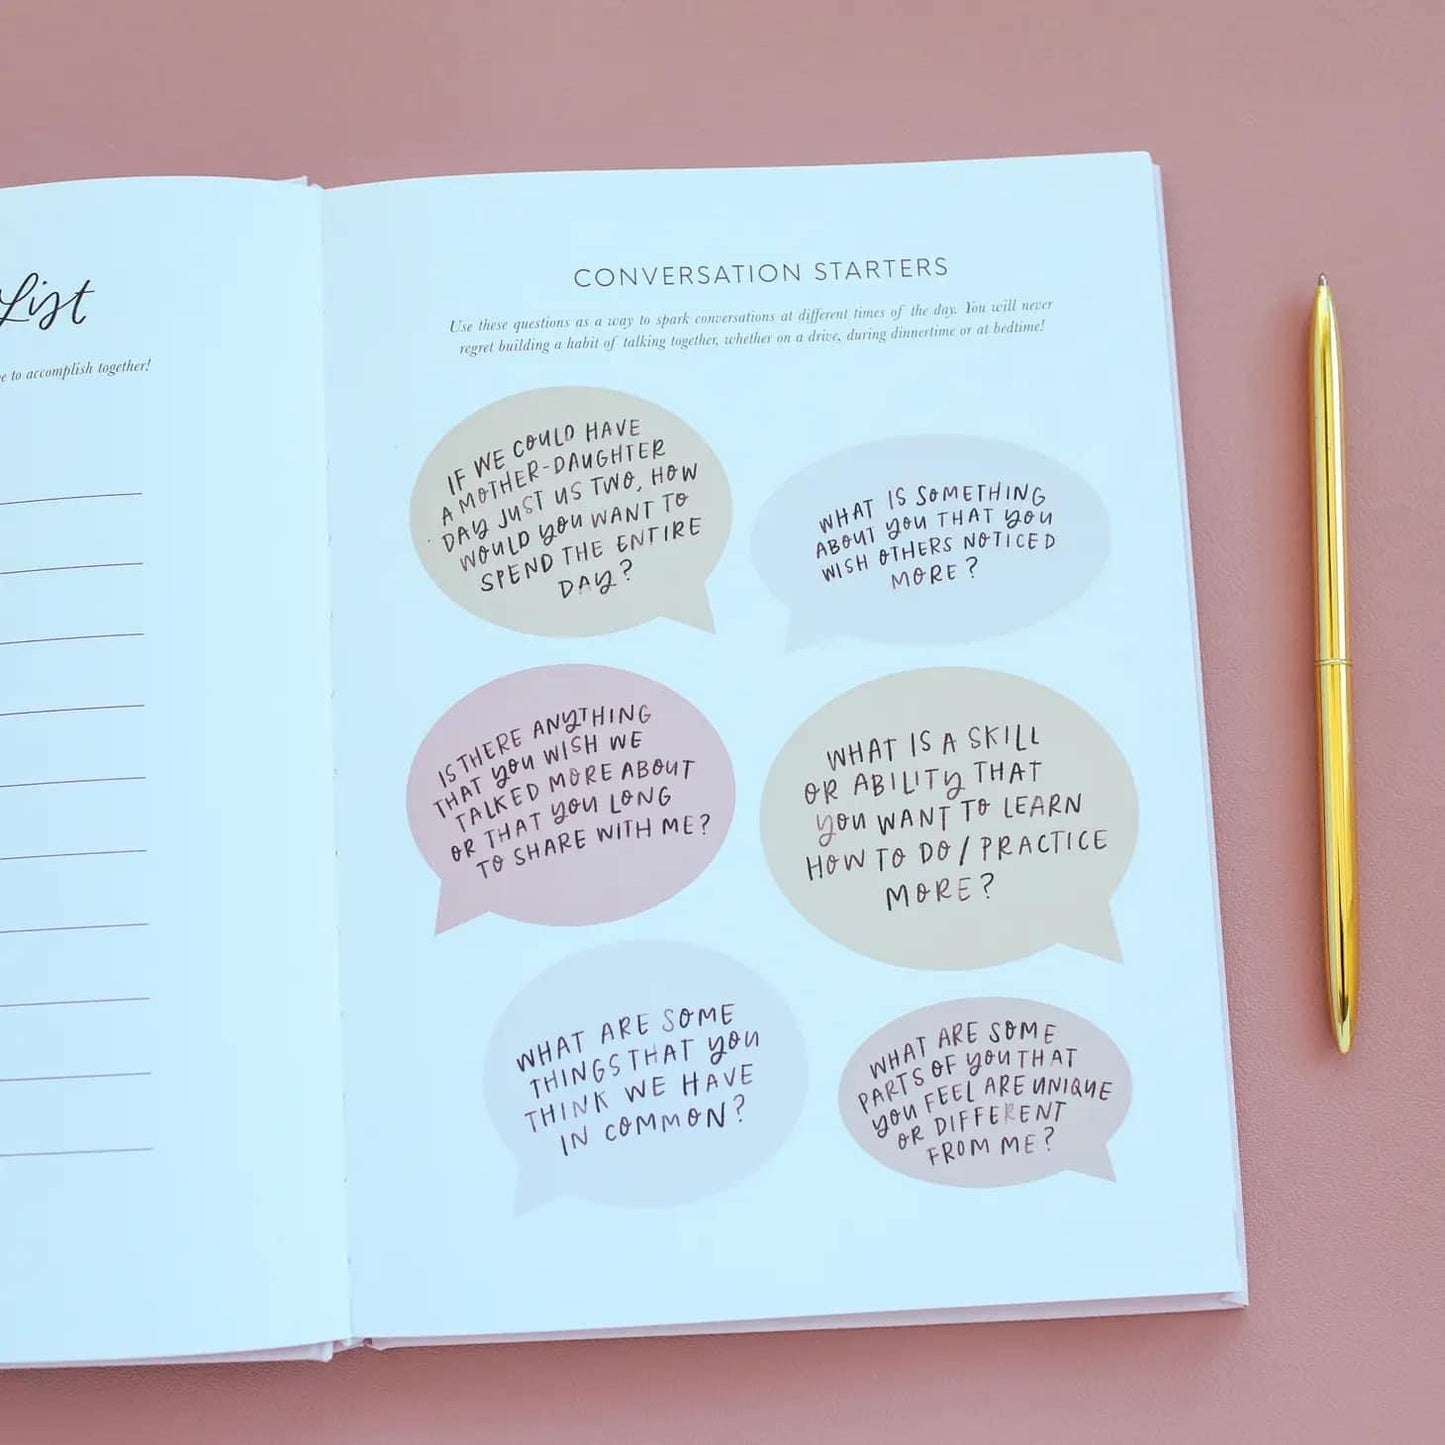 List
to accomplish together!
CONVERSATION STARTERS
Use these questions as a way to spark conversations at different times of the day. You will never
regret building a habit of talking together, whether on a drive, during dinnertime or at bedtime!
IF WE COULD HAVE
A MOTHER-DAUGHTER
DAY JUST US TWO, HOW
WOULD YOU WANT TO
SPEND THE ENTIRE
DAY?
WHAT IS SOMETHING
ABOUT YOU THAT YOU
WISH OTHERS NOTICED
MORE?
IS THERE ANYTHING
THAT YOU WISH WE
TALKED MORE ABOUT
OR THAT YOU LONG
TO SHARE WITH ME?
WHAT IS A SKILL
OR ABILITY THAT
YOU WANT TO LEARN
HOW TO DO / PRACTICE
MORE?
WHAT ARE SOME
THINGS THAT YOU
THINK WE HAVE
IN COMMON?
WHAT ARE SOME
PARTS OF YOU THAT
YOU FEEL ARE UNIQUE
OR DIFFERENT
FROM ME?